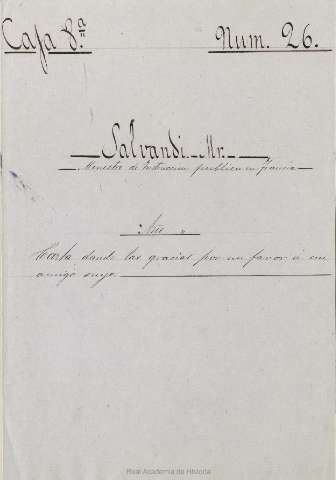 Caja 8.ª Num. 26.
Salvandi Mr.
Ministro de Instruccion publica en Francia
Año "
Carta dando las gracias por un favor á un
amigo suyo
Real Academia de Historia